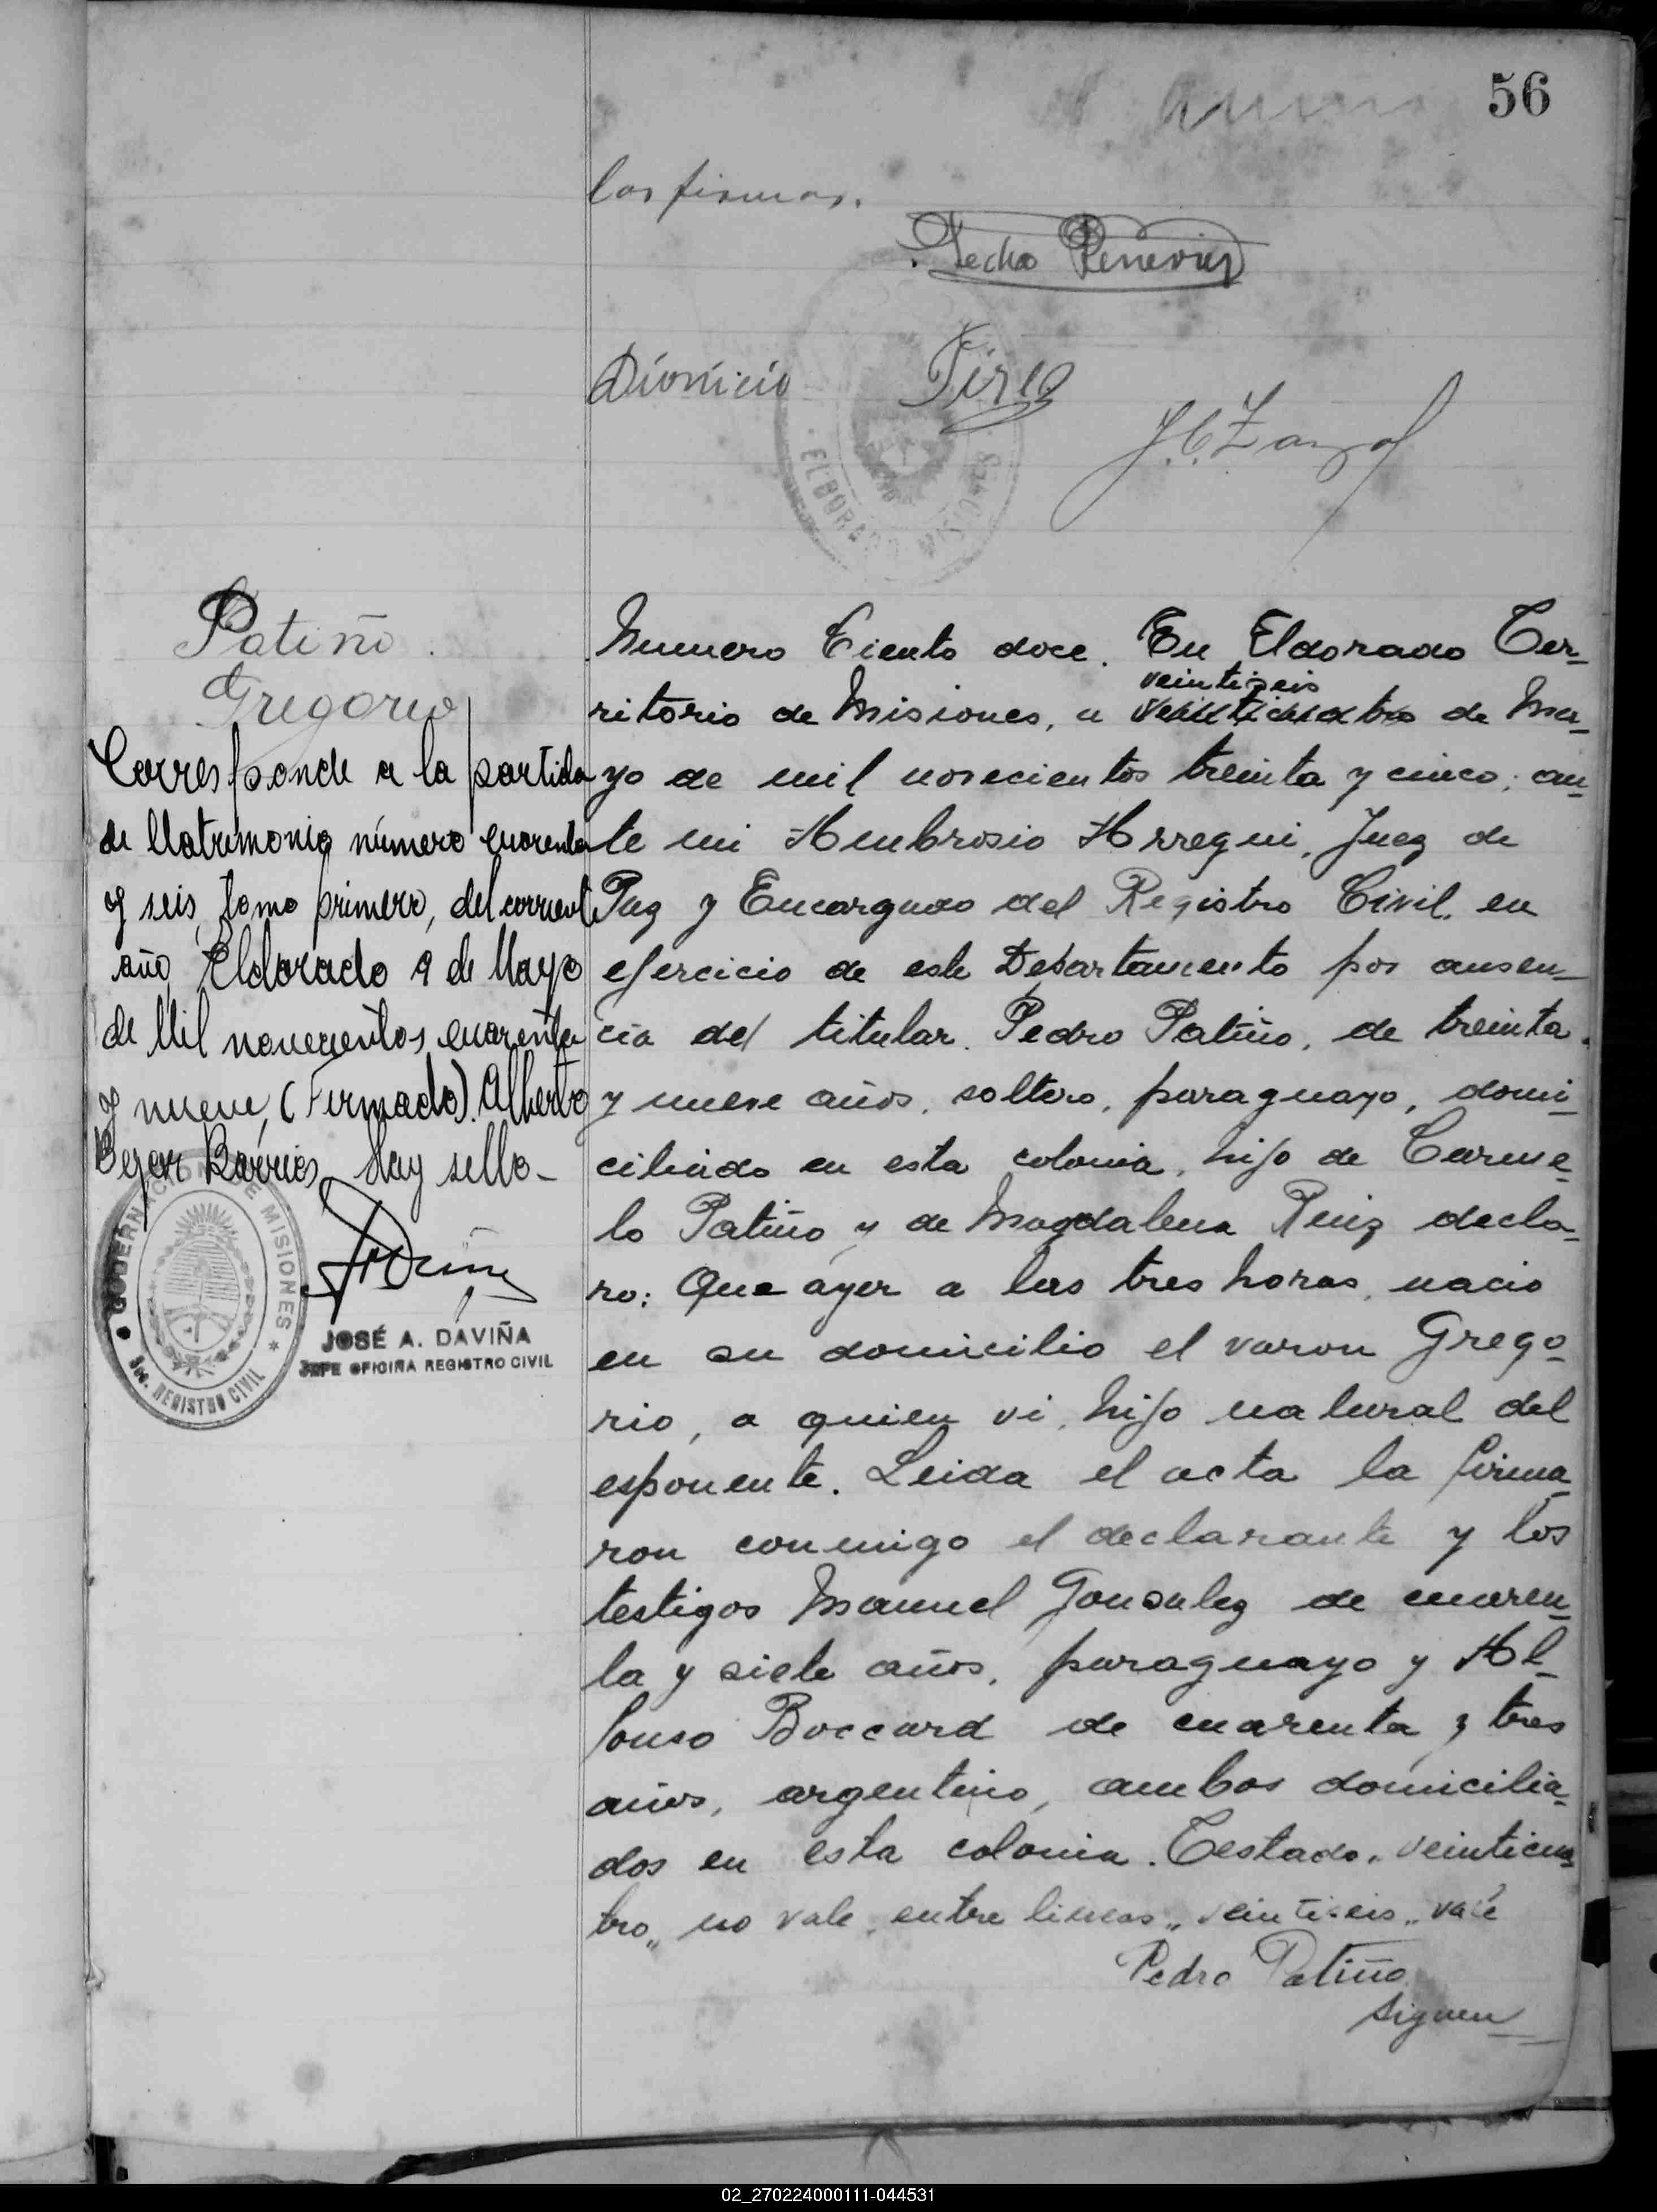 56
las firmas.
Pedro
Dionicio
ELDORADO MISIONES
Patiño
Gregorio
Corresponde a la partida
de Matrimonio número cuarenta
y seis, tomo primero, del corriente
año, Eldorado 9 de Mayo
de Mil novecientos cuarenta
y nueve, (Firmado). Alberto
Bejar Barrios Hay sello_
GOBERNACION DE MISIONES
REGISTRO CIVIL
JOSÉ A. DAVIÑA
JEFE OFICINA REGISTRO CIVIL
Numero Ciento doce. En Eldorado Ter_
veintiseis
ritorio de Misiones, a veinticuatro de Ma_
yo de mil novecientos treinta y cinco; an_
te mi Ambrosio Arregui, Juez de
Paz y Encargado del Registro Civil, en
ejercicio de este Departamento por ausen_
cia del titular. Pedro Patiño, de treinta
y nueve años, soltero, paraguayo, domi_
ciliado en esta colonia, hijo de Carme_
lo Patiño y de Magdalena Ruiz decla_
ro: Que ayer a las tres horas, nacio
en su domicilio el varon Grego_
rio, a quien vi, hijo natural del
esponente. Leida el acta la firma_
ron conmigo el declarante y los
testigos Manuel Gonsalez de cuaren_
ta y siete años, paraguayo y Al_
fonso Boccard de cuarenta y tres
años, argentino, ambos domicilia_
dos en esta colonia. Testado „ veinticua_
tro„ no vale, entre lineas „ veintiseis „ vale
Pedro Patiño
Siguen
02_270224000111-044531